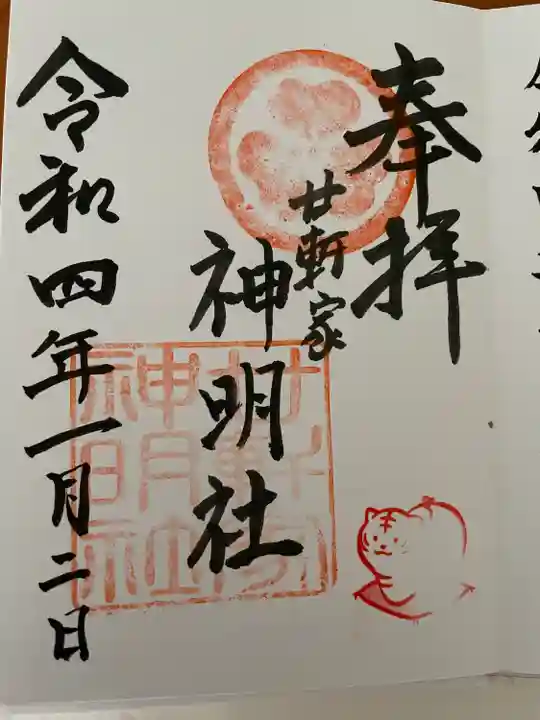 奉拝
廿軒家
神明社
令和四年一月二日
廿軒家
神明社